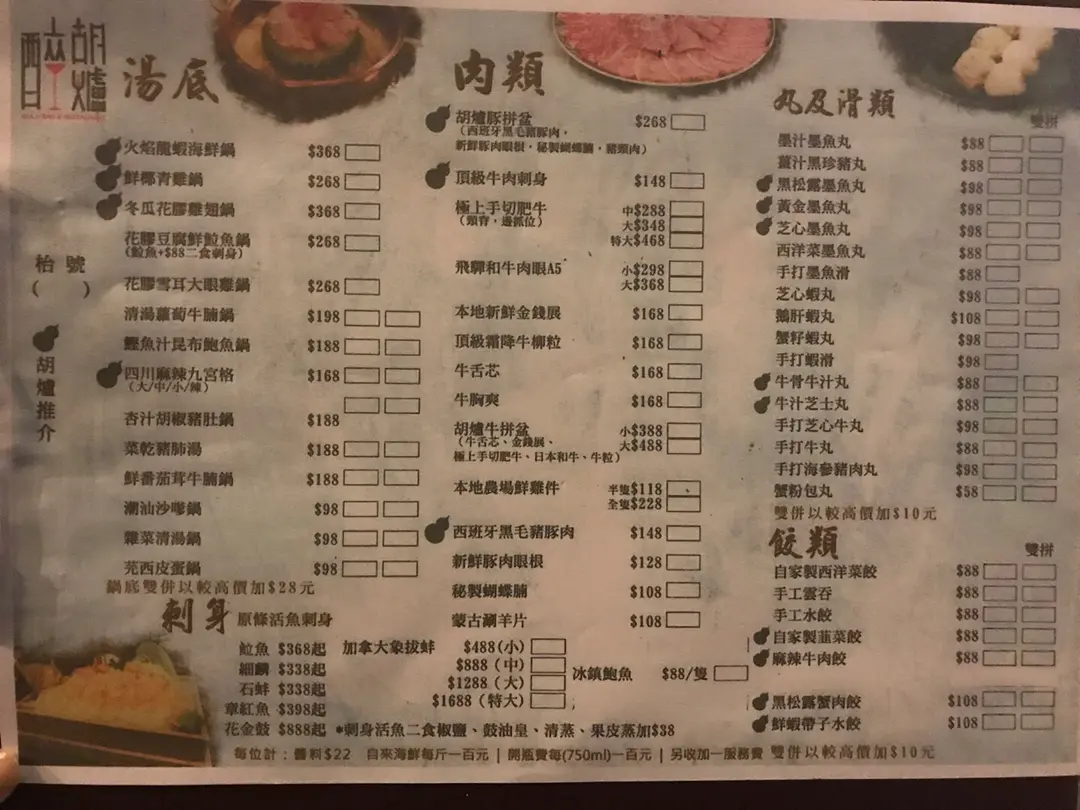 醉胡爐
湯底
火焰龍蝦海鮮鍋 $368
鮮椰青雞鍋 $268
冬瓜花膠雞翅鍋 $368
花膠豆腐鮮鮫魚鍋 $268
(鮫魚+$88二食刺身)
花膠雪耳大眼雞鍋 $268
清湯蘿蔔牛腩鍋 $198
鰹魚汁昆布鮑魚鍋 $188
四川麻辣九宮格 $168
(大/中/小/辣)
杏汁胡椒豬肚鍋 $188
菜乾豬肺湯 $188
鮮番茄茸牛腩鍋 $188
潮汕沙嗲鍋 $98
雜菜清湯鍋 $98
芫西皮蛋鍋 $98
鍋底雙併以較高價加$28元
枱號
( )
胡爐推介
肉類
胡爐豚拼盆 $268
(西班牙黑毛豬豚肉,
新鮮豚肉眼根,秘製蝴蝶腩,豬頸肉)
頂級牛肉刺身 $148
極上手切肥牛 中$288
(頸脊,邊抓位) 大$348
特大$468
飛驒和牛肉眼A5 小$298
大$368
本地新鮮金錢展 $168
頂級霜降牛柳粒 $168
牛舌芯 $168
牛胸爽 $168
胡爐牛拼盆 小$388
(牛舌芯、金錢展、 大$488
極上手切肥牛、日本和牛、牛粒)
本地農場鮮雞件 半隻$118
全隻$228
西班牙黑毛豬豚肉 $148
新鮮豚肉眼根 $128
秘製蝴蝶腩 $108
蒙古涮羊片 $108
丸及滑類
雙拼
墨汁墨魚丸 $88
薑汁黑珍豬丸 $88
黑松露墨魚丸 $98
黃金墨魚丸 $98
芝心墨魚丸 $98
西洋菜墨魚丸 $88
手打墨魚滑 $88
芝心蝦丸 $98
鵝肝蝦丸 $108
蟹籽蝦丸 $98
手打蝦滑 $98
牛骨牛汁丸 $88
牛汁芝士丸 $88
手打芝心牛丸 $98
手打牛丸 $88
手打海參豬肉丸 $98
蟹粉包丸 $58
雙併以較高價加$10元
餃類
雙拼
自家製西洋菜餃 $88
手工雲吞 $88
手工水餃 $88
自家製韮菜餃 $88
麻辣牛肉餃 $88
黑松露蟹肉餃 $108
鮮蝦帶子水餃 $108
雙併以較高價加$10元
刺身 原條活魚刺身
$368起
細鱗 $338起
石蚌 $338起
章紅魚 $398起
花金鼓 $888起
加拿大象拔蚌 $488(小)
$888(中)
$1288(大)
$1688(特大)
冰鎮鮑魚 $88/隻
*刺身活魚二食椒鹽、鼓油皇、清蒸、果皮蒸加$38
每位計:醬料$22 自來海鮮每斤一百元 | 開瓶費每(750ml)一百元 | 另收加一服務費